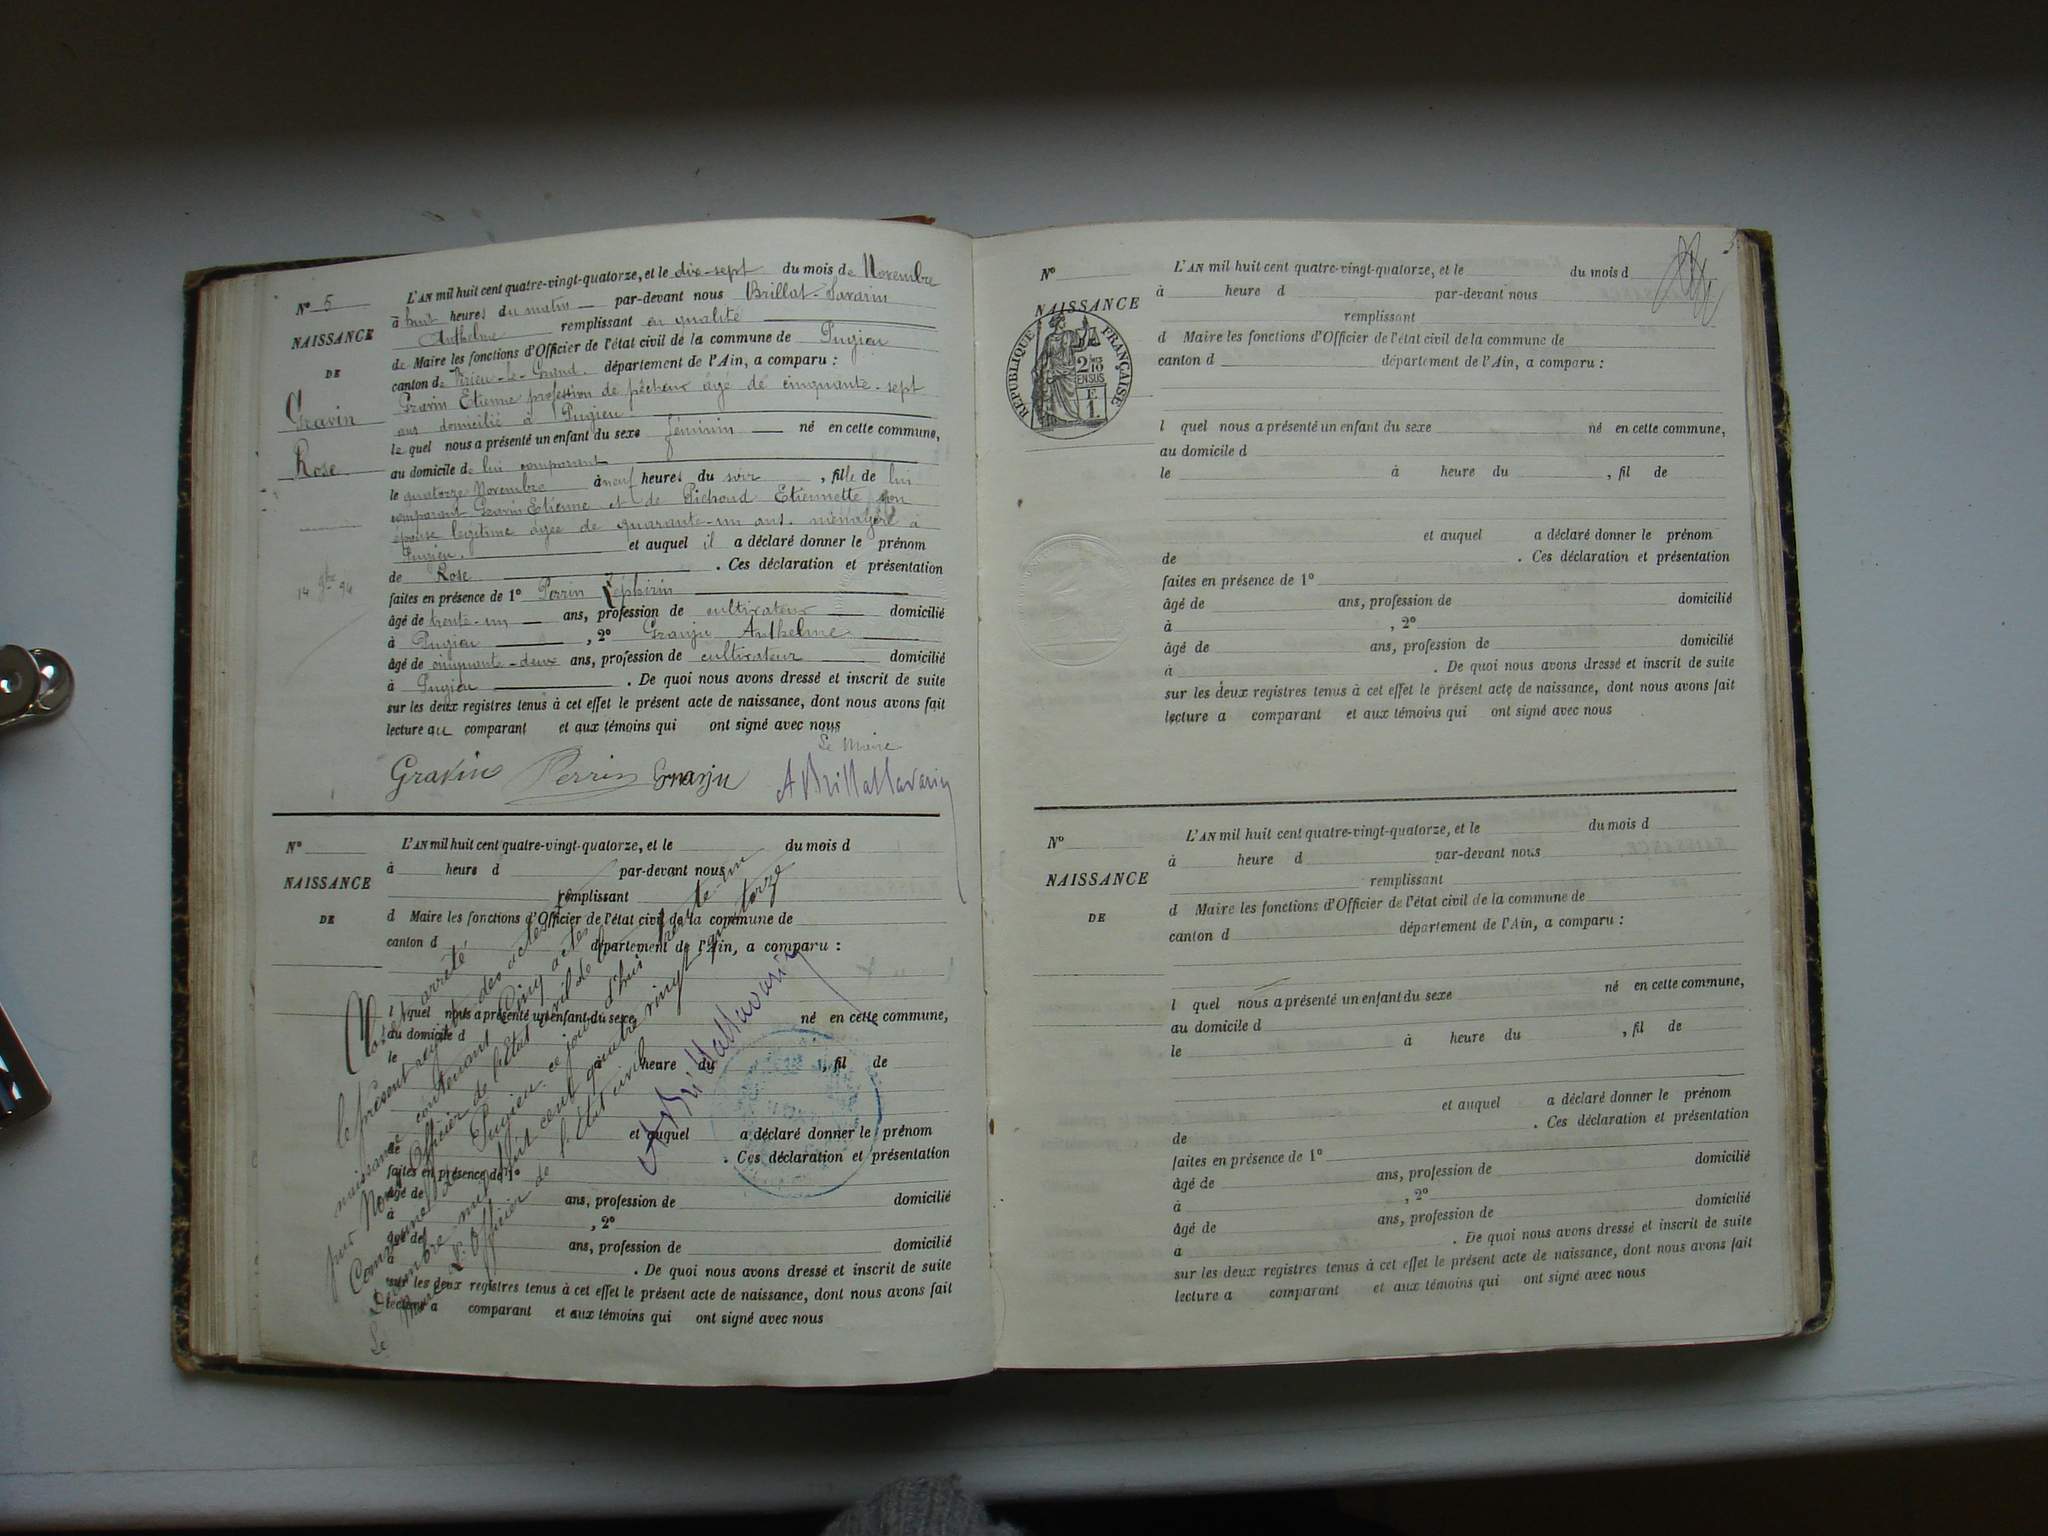 N° 5
NAISSANCE
DE
Gravin
Rose
14 9bre 94
L'AN mil huit cent quatre-vingt-quatorze, et le dix-sept du mois de Novembre
à huit heures du matin par-devant nous Brillat-Savarin
Anthelme remplissant en qualité
de Maire les fonctions d'Officier de l'état civil de la commune de Pugieu
canton de Virieu-le-Grand département de l'Ain, a comparu :
Gravin Etienne profession de pêcheur âgé de cinquante-sept
ans domicilié à Pugieu
lequel nous a présenté un enfant du sexe féminin né en cette commune,
au domicile de lui comparant
le quatorze Novembre à neuf heures du soir, fille de lui
comparant Gravin Etienne et de Pichoud Etiennette son
épouse légitime âgée de quarante-un ans. ménagère à
Pugieu. et auquel il a déclaré donner le prénom
de Rose. Ces déclaration et présentation
faites en présence de 1° Perrin Zéphirin
âgé de trente-un ans, profession de cultivateur domicilié
à Pugieu, 2° Granju Anthelme
âgé de cinquante-deux ans, profession de cultivateur domicilié
à Pugieu. De quoi nous avons dressé et inscrit de suite
sur les deux registres tenus à cet effet le présent acte de naissance, dont nous avons fait
lecture au comparant et aux témoins qui ont signé avec nous
Le Maire
Gravin Perrin Granju A Brillat Savarin
N°
NAISSANCE
DE
L'AN mil huit cent quatre-vingt-quatorze, et le du mois d
à heure d par-devant nous
remplissant
d Maire les fonctions d'Officier de l'état civil de la commune de
canton d département de l'Ain, a comparu :
l quel nous a présenté un enfant du sexe né en cette commune,
au domicile d
le à heure du , fil de
et auquel a déclaré donner le prénom
de . Ces déclaration et présentation
faites en présence de 1°
âgé de ans, profession de domicilié
à , 2°
âgé de ans, profession de domicilié
à . De quoi nous avons dressé et inscrit de suite
sur les deux registres tenus à cet effet le présent acte de naissance, dont nous avons fait
lecture a comparant et aux témoins qui ont signé avec nous
Clos et arrêté
le présent registre des actes de
naissance contenant Cinq actes
par Nous Officier de l'Etat civil de la
Commune de Pugieu ce jourd'hui trente-un
Décembre mil huit cent quatre vingt quatorze
Le Maire Officier de l'Etat civil
A Brillat Savarin
N°
NAISSANCE
RÉPUBLIQUE FRANÇAISE
2/10
EN SUS
1
L'AN mil huit cent quatre-vingt-quatorze, et le du mois d
à heure d par-devant nous
remplissant
d Maire les fonctions d'Officier de l'état civil de la commune de
canton d département de l'Ain, a comparu :
l quel nous a présenté un enfant du sexe né en cette commune,
au domicile d
le à heure du , fil de
et auquel a déclaré donner le prénom
de . Ces déclaration et présentation
faites en présence de 1°
âgé de ans, profession de domicilié
à , 2°
âgé de ans, profession de domicilié
à . De quoi nous avons dressé et inscrit de suite
sur les deux registres tenus à cet effet le présent acte de naissance, dont nous avons fait
lecture a comparant et aux témoins qui ont signé avec nous
N°
NAISSANCE
DE
L'AN mil huit cent quatre-vingt-quatorze, et le du mois d
à heure d par-devant nous
remplissant
d Maire les fonctions d'Officier de l'état civil de la commune de
canton d département de l'Ain, a comparu :
l quel nous a présenté un enfant du sexe né en cette commune,
au domicile d
le à heure du , fil de
et auquel a déclaré donner le prénom
de . Ces déclaration et présentation
faites en présence de 1°
âgé de ans, profession de domicilié
à , 2°
âgé de ans, profession de domicilié
à . De quoi nous avons dressé et inscrit de suite
sur les deux registres tenus à cet effet le présent acte de naissance, dont nous avons fait
lecture a comparant et aux témoins qui ont signé avec nous